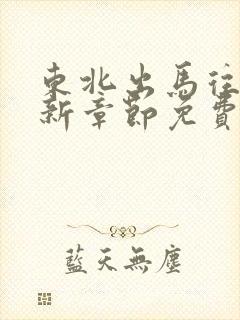 東北出馬往
新章節免費
藍天無塵